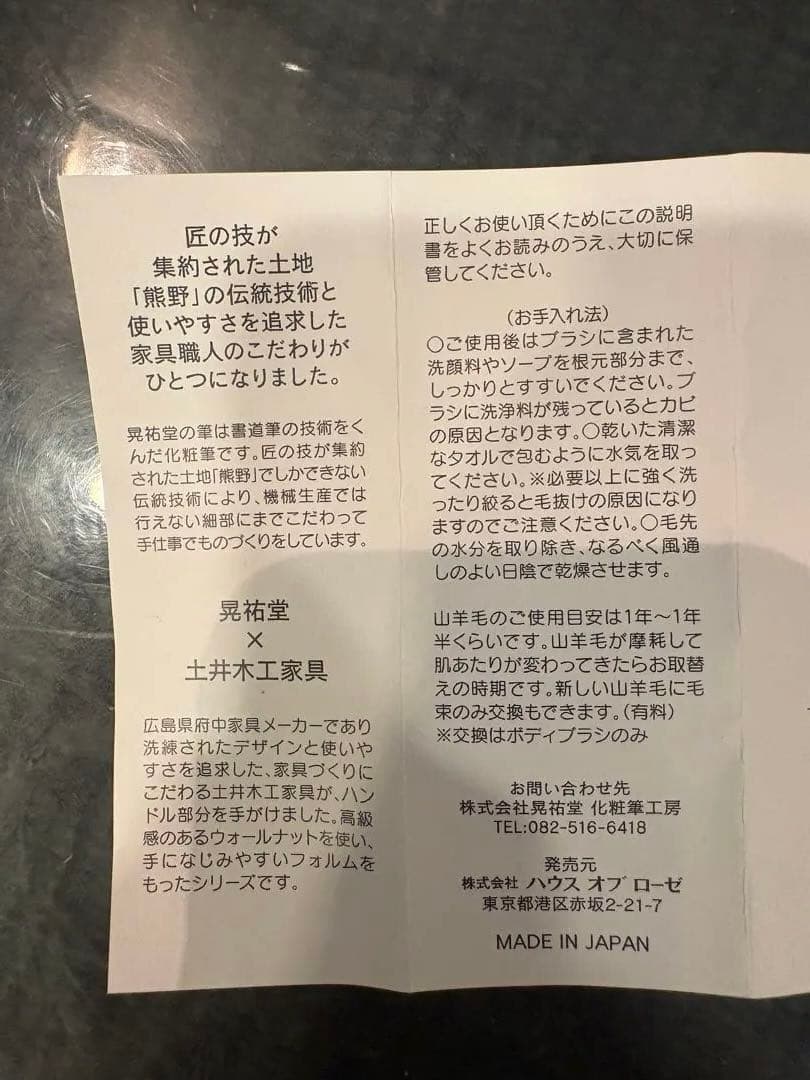 匠の技が
集約された土地
「熊野」の伝統技術と
使いやすさを追求した
家具職人のこだわりが
ひとつになりました。
晃祐堂の筆は書道筆の技術をく
んだ化粧筆です。匠の技が集約
された土地「熊野」でしかできない
伝統技術により、機械生産では
行えない細部にまでこだわって
手仕事でものづくりをしています。
晃祐堂
×
土井木工家具
広島県府中家具メーカーであり
洗練されたデザインと使いや
すさを追求した、家具づくりに
こだわる土井木工家具が、ハン
ドル部分を手がけました。高級
感のあるウォールナットを使い、
手になじみやすいフォルムを
もったシリーズです。
正しくお使い頂くためにこの説明
書をよくお読みのうえ、大切に保
管してください。
(お手入れ法)
○ご使用後はブラシに含まれた
洗顔料やソープを根元部分まで、
しっかりとすすいでください。ブ
ラシに洗浄料が残っているとカビ
の原因となります。○乾いた清潔
なタオルで包むように水気を取っ
てください。※必要以上に強く洗
ったり絞ると毛抜けの原因になり
ますのでご注意ください。○毛先
の水分を取り除き、なるべく風通
しのよい日陰で乾燥させます。
山羊毛のご使用目安は1年〜1年
半くらいです。山羊毛が摩耗して
肌あたりが変わってきたらお取替
えの時期です。新しい山羊毛に毛
束のみ交換もできます。(有料)
※交換はボディブラシのみ
お問い合わせ先
株式会社晃祐堂 化粧筆工房
TEL:082-516-6418
発売元
株式会社 ハウス オブ ローゼ
東京都港区赤坂2-21-7
MADE IN JAPAN